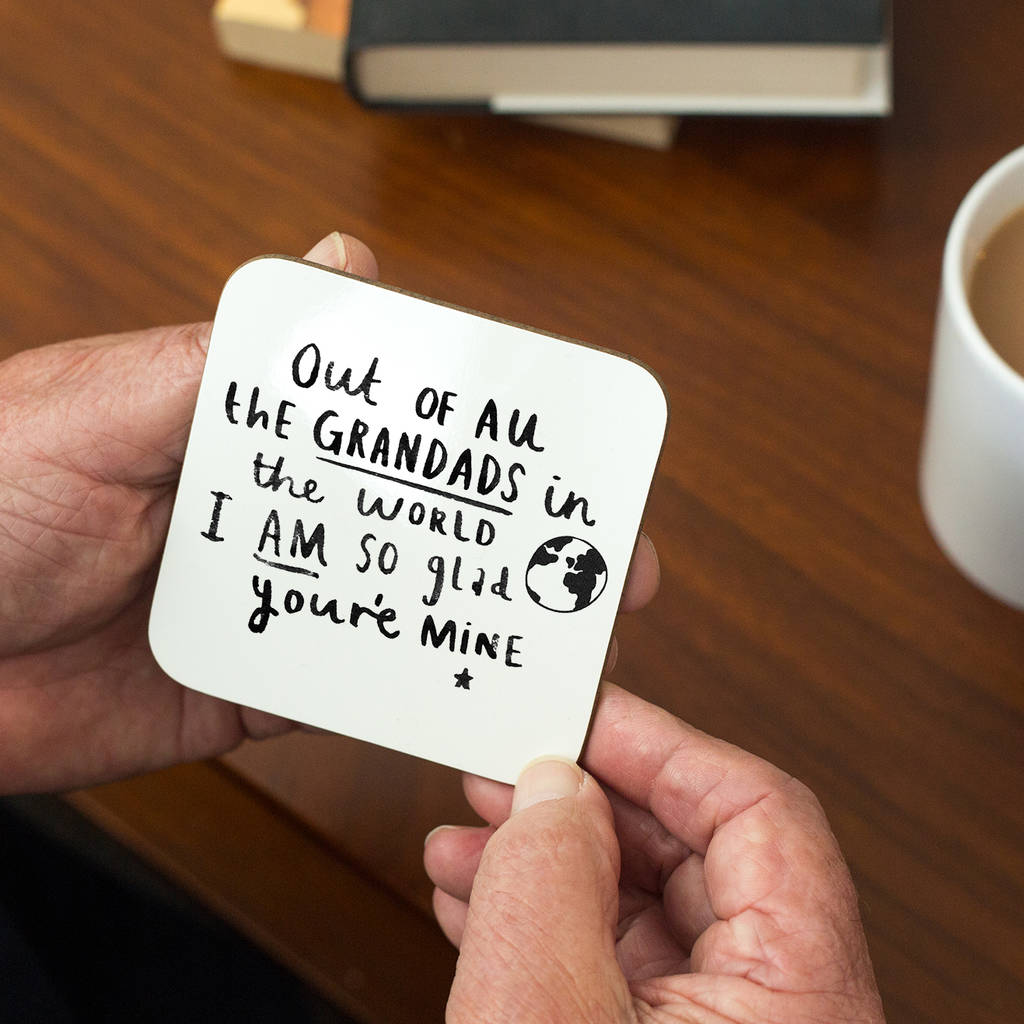 Out OF All
thE GRANDADS in
the WORLD
I AM SO glad
you're MINE